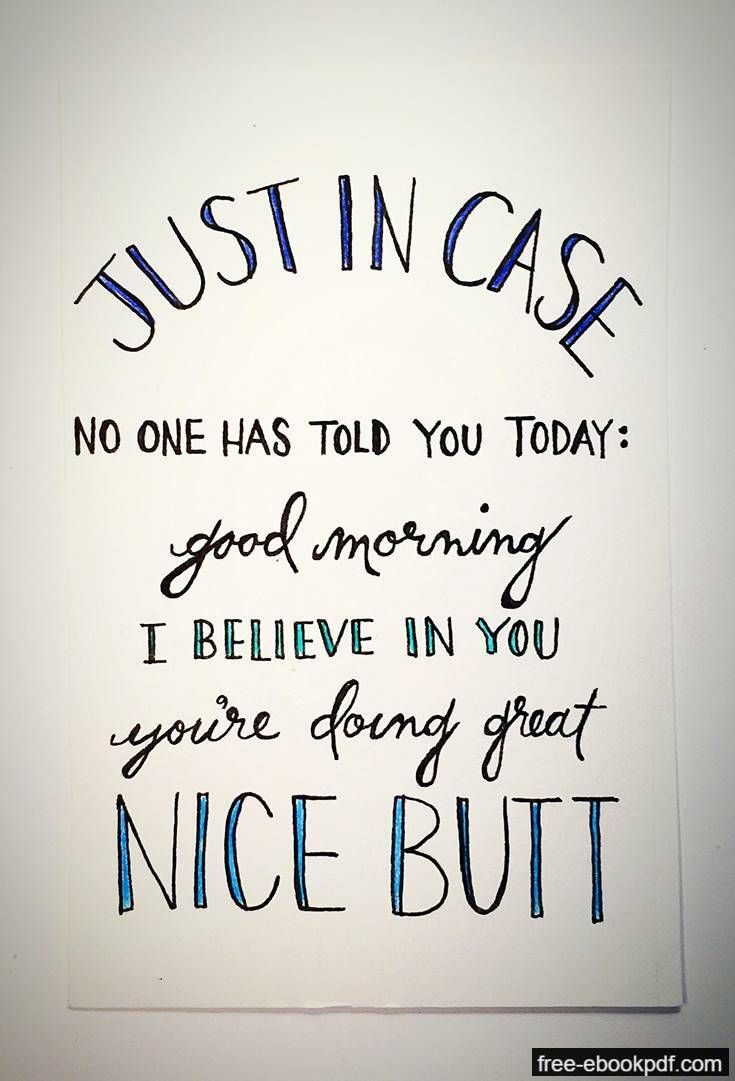 JUST IN CASE
NO ONE HAS TOLD YOU TODAY:
good morning
I BELIEVE IN YOU
you're doing great
NICE BUTT
free-ebookpdf.com